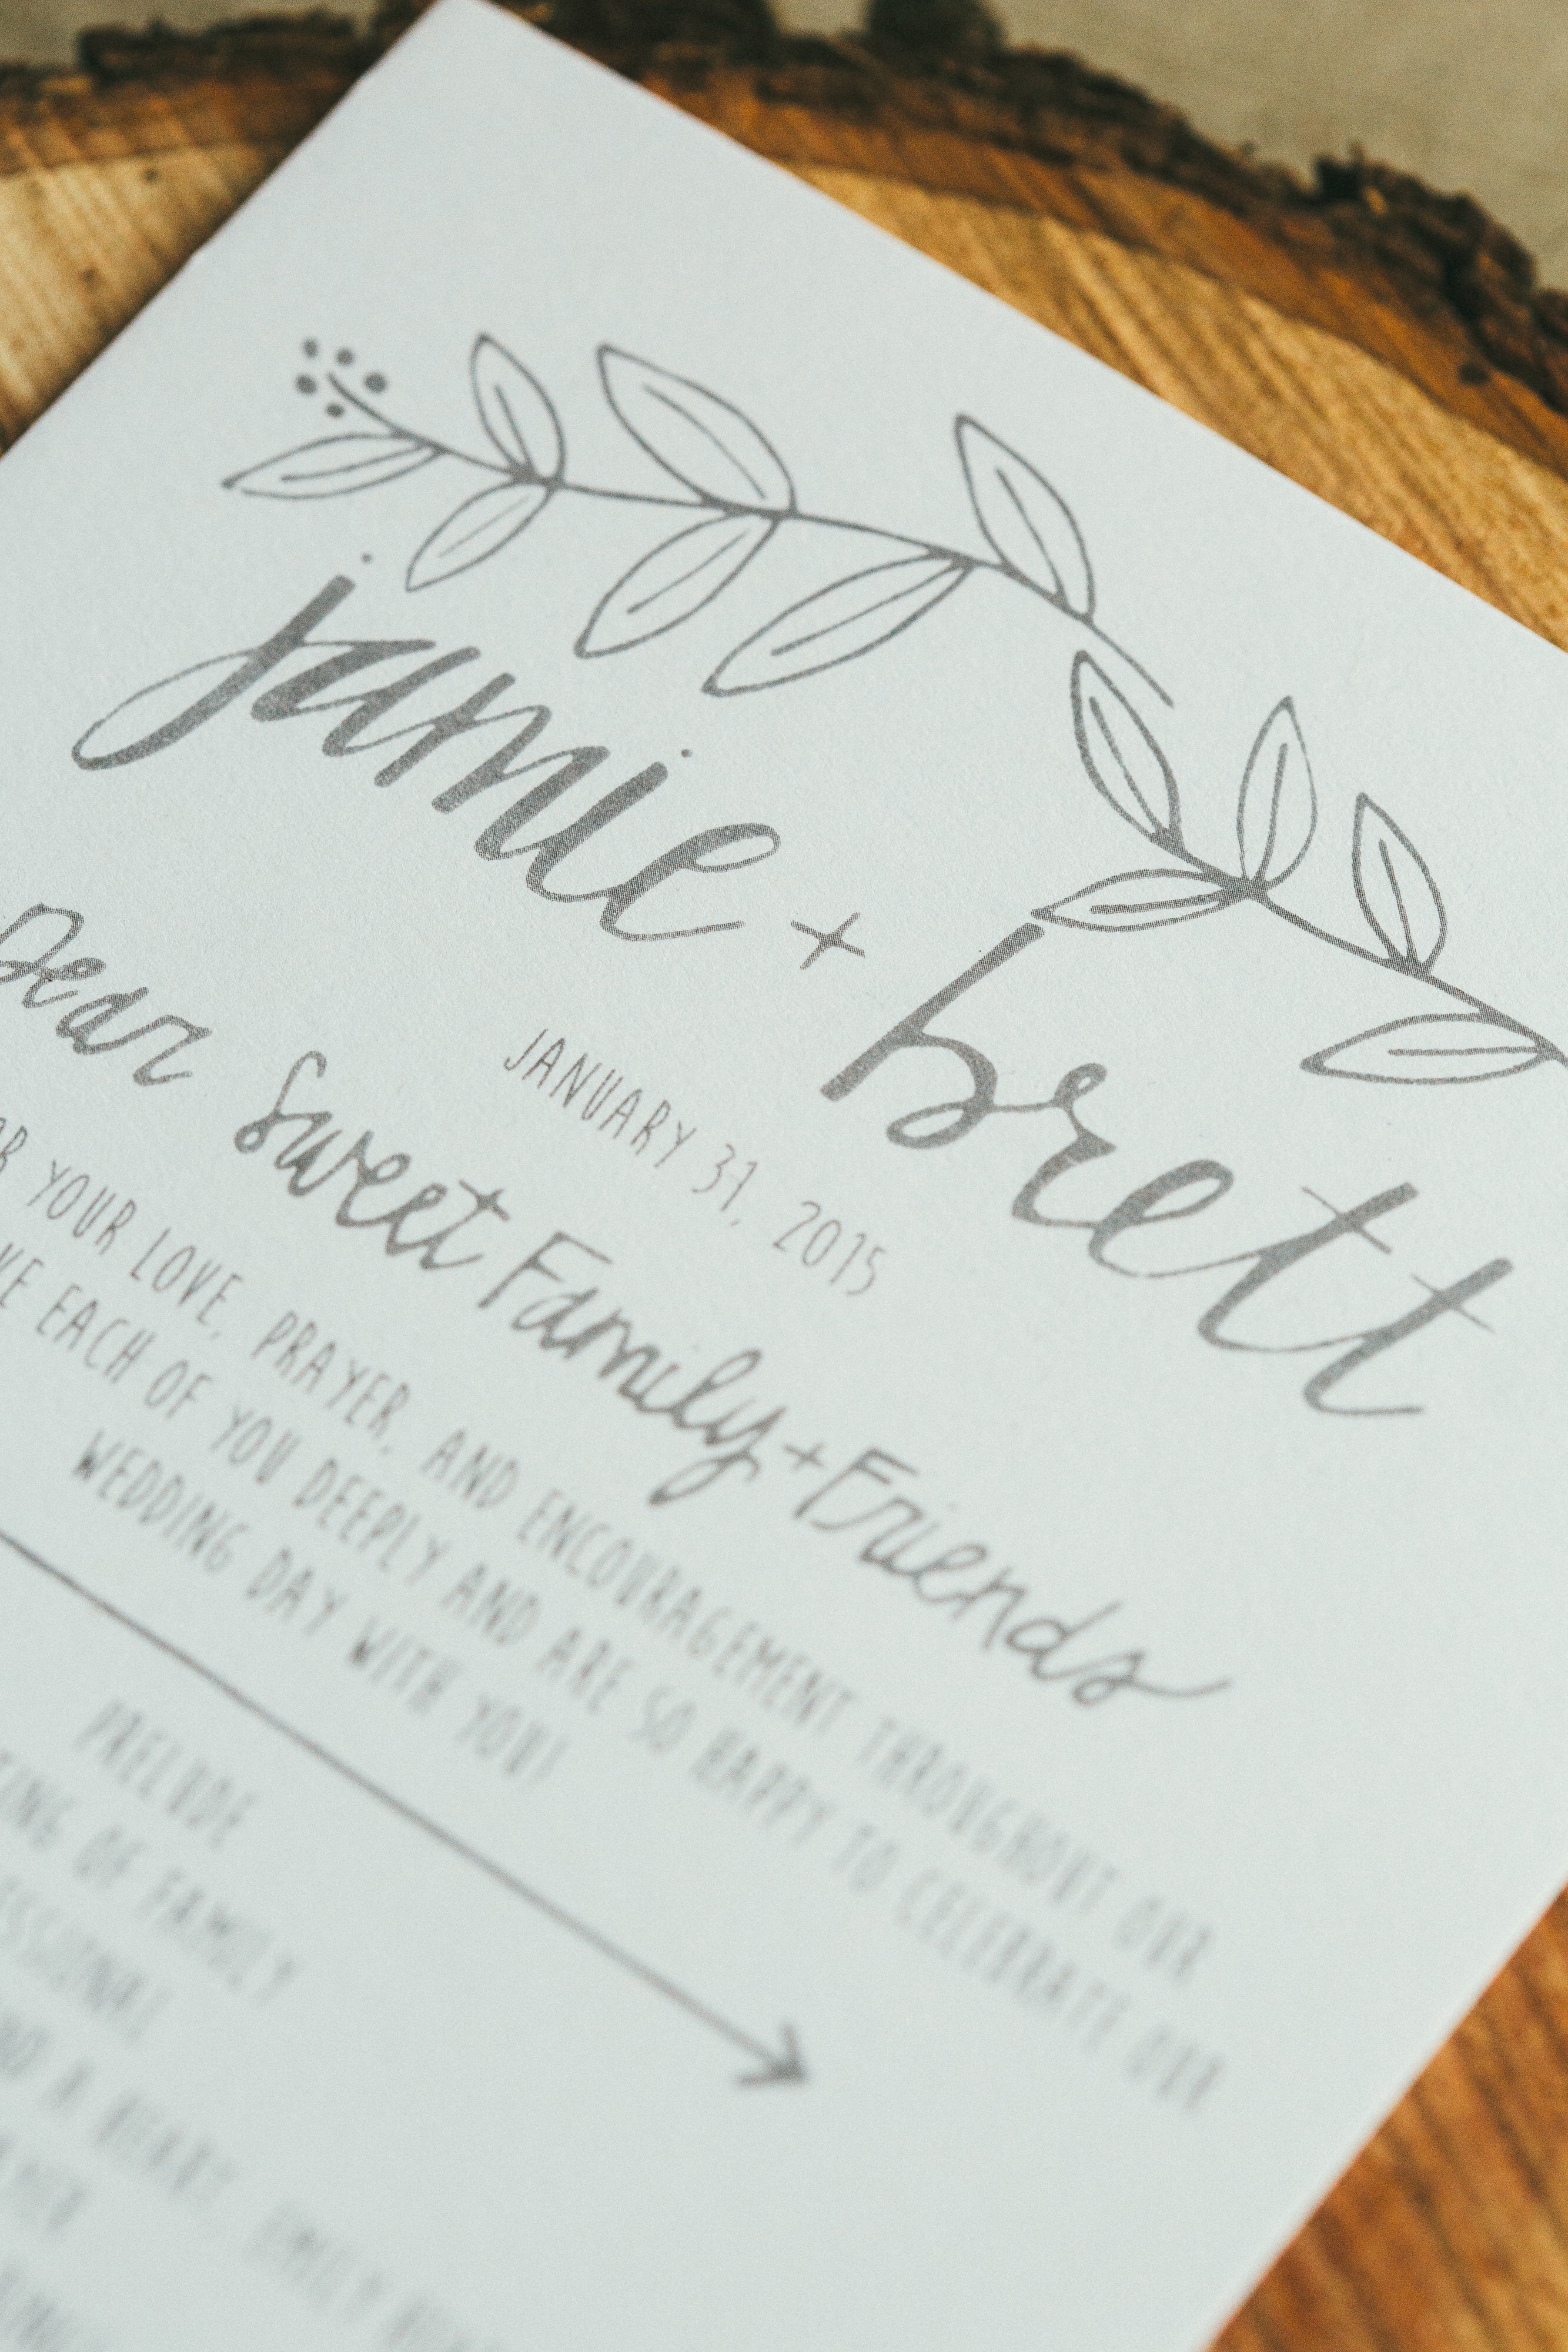 jamie + brett
JANUARY 31, 2015
Dear Sweet Family + Friends
YOUR LOVE, PRAYER, AND ENCOURAGEMENT THROUGHOUT OUR
EACH OF YOU DEEPLY AND ARE SO HAPPY TO CELEBRATE OUR
WEDDING DAY WITH YOU!
PRELUDE
OF FAMILY
A HEART, EMILY